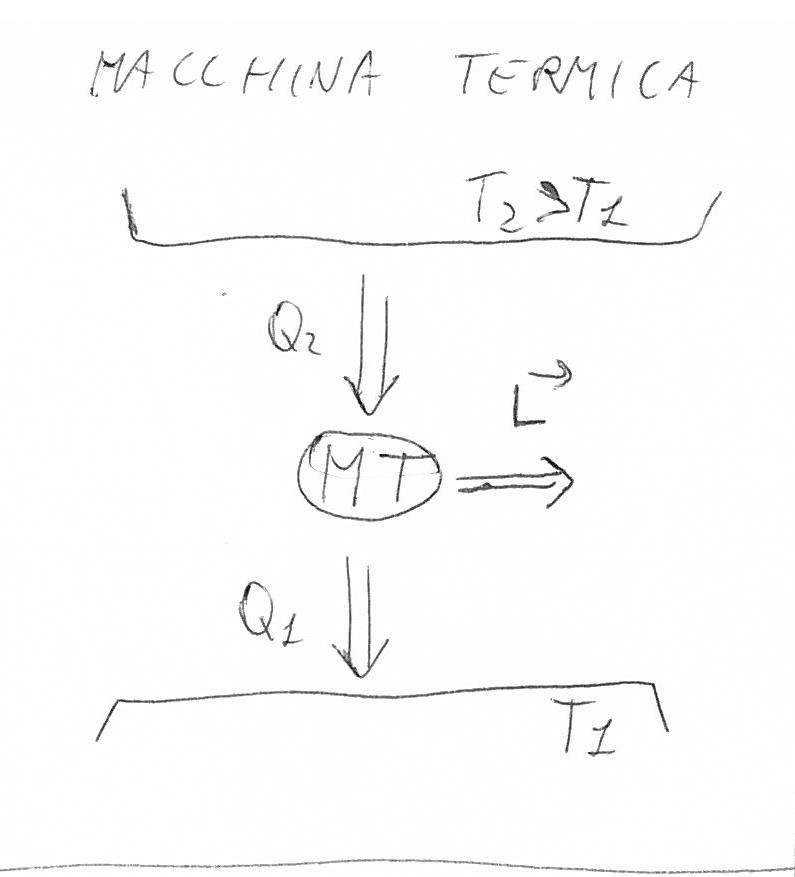 MACCHINA TERMICA
T₂>T₁
Q₂
L→
MT
Q₁
T₁